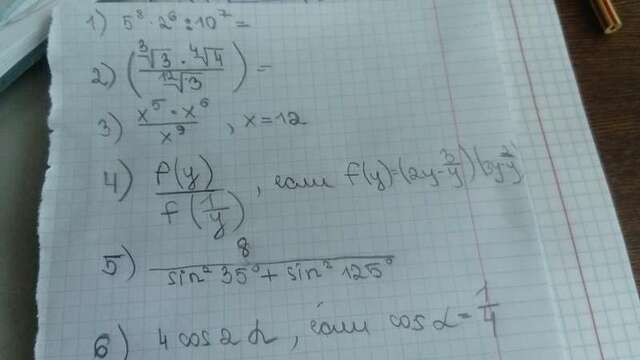 1) 5⁸ · 2⁶ : 10⁷ =
2) (∛3 · ∜4 / ¹²√3) =
3) x⁵ · x⁶ / x⁹ , x = 12
4) f(y) / f(1/y) , если f(y) = (2y - 2/y)(
5) 8 / sin² 35° + sin² 125°
6) 4 cos 2α , если cos α = 1/4